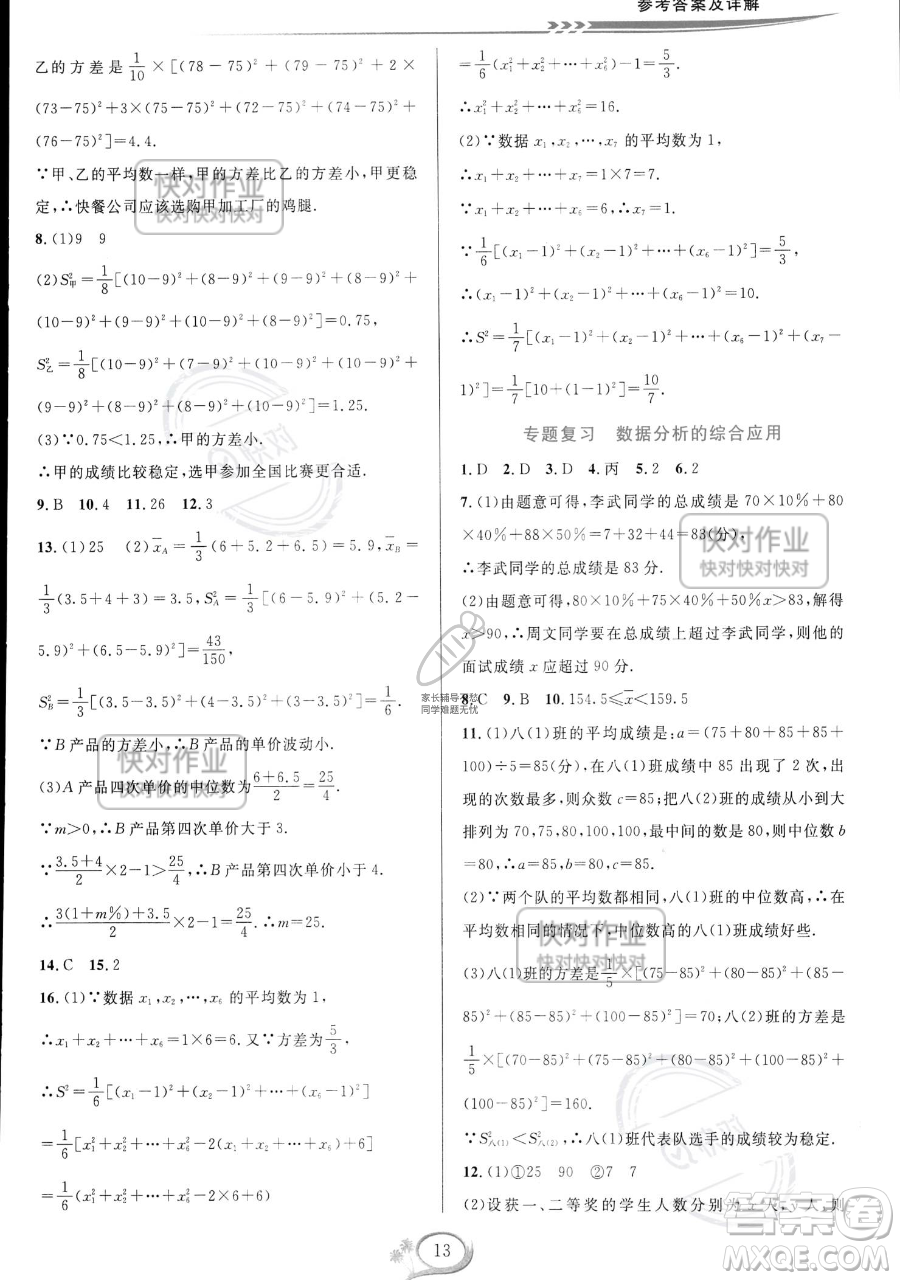 参考答案及详解
乙的方差是\frac{1}{10}×[(78－75)²＋(79－75)²＋2×
(73－75)²＋3×(75－75)²＋(72－75)²＋(74－75)²＋
(76－75)²]＝4.4.
∵甲、乙的平均数一样，甲的方差比乙的方差小，甲更稳
定，∴快餐公司应该选购甲加工厂的鸡腿.
8.(1)9 9
(2)S²甲＝\frac{1}{8}[(10－9)²＋(8－9)²＋(9－9)²＋(8－9)²＋
(10－9)²＋(9－9)²＋(10－9)²＋(8－9)²]＝0.75，
S²乙＝\frac{1}{8}[(10－9)²＋(7－9)²＋(10－9)²＋(10－9)²＋
(9－9)²＋(8－9)²＋(8－9)²＋(10－9)²]＝1.25.
(3)∵0.75＜1.25，∴甲的方差小，
∴甲的成绩比较稳定，选甲参加全国比赛更合适.
9.B 10.4 11.26 12.3
13.(1)25 (2)x̄A＝\frac{1}{3}(6＋5.2＋6.5)＝5.9，x̄B＝
\frac{1}{3}(3.5＋4＋3)＝3.5，S²A＝\frac{1}{3}[(6－5.9)²＋(5.2－
5.9)²＋(6.5－5.9)²]＝\frac{43}{150}，
S²B＝\frac{1}{3}[(3.5－3.5)²＋(4－3.5)²＋(3－3.5)²]＝\frac{1}{6}.
∵B产品的方差小，∴B产品的单价波动小.
(3)A产品四次单价的中位数为\frac{6＋6.5}{2}＝\frac{25}{4}，
∵m＞0，∴B产品第四次单价大于3.
∵\frac{3.5＋4}{2}×2－1＞\frac{25}{4}，∴B产品第四次单价小于4.
∴\frac{3(1＋m％)＋3.5}{2}×2－1＝\frac{25}{4}.∴m＝25.
14.C 15.2
16.(1)∵数据x₁，x₂，…，x₆的平均数为1，
∴x₁＋x₂＋…＋x₆＝1×6＝6.又∵方差为\frac{5}{3}，
∴S²＝\frac{1}{6}[(x₁－1)²＋(x₂－1)²＋…＋(x₆－1)²]
＝\frac{1}{6}[x₁²＋x₂²＋…＋x₆²－2(x₁＋x₂＋…＋x₆)＋6]
＝\frac{1}{6}(x₁²＋x₂²＋…＋x₆²－2×6＋6)
＝\frac{1}{6}(x₁²＋x₂²＋…＋x₆²)－1＝\frac{5}{3}.
∴x₁²＋x₂²＋…＋x₆²＝16.
(2)∵数据x₁，x₂，…，x₇的平均数为1，
∴x₁＋x₂＋…＋x₇＝1×7＝7.
∵x₁＋x₂＋…＋x₆＝6，∴x₇＝1.
∵\frac{1}{6}[(x₁－1)²＋(x₂－1)²＋…＋(x₆－1)²]＝\frac{5}{3}，
∴(x₁－1)²＋(x₂－1)²＋…＋(x₆－1)²＝10.
∴S²＝\frac{1}{7}[(x₁－1)²＋(x₂－1)²＋…＋(x₇－
1)²]＝\frac{1}{7}[10＋(1－1)²]＝\frac{10}{7}.
专题复习 数据分析的综合应用
1.D 2.D 3.D 4.丙 5.2 6.2
7.(1)由题意可得，李武同学的总成绩是70×10％＋80
×40％＋88×50％＝7＋32＋44＝83(分)，
∴李武同学的总成绩是83分.
(2)由题意可得，80×10％＋75×40％＋50％x＞83，解得
x＞90，∴周文同学要在总成绩上超过李武同学，则他的
面试成绩x应超过90分.
8.C 9.B 10.154.5≤x̄＜159.5
11.(1)八(1)班的平均成绩是：a＝(75＋80＋85＋85＋
100)÷5＝85(分)，在八(1)班成绩中85出现了2次，出
现的次数最多，则众数c＝85；把八(2)班的成绩从小到大
排列为70，75，80，100，100，最中间的数是80，则中位数b
＝80，∴a＝85，b＝80，c＝85.
(2)∵两个队的平均数都相同，八(1)班的中位数高，∴在
平均数相同的情况下，中位数高的八(1)班成绩好些.
(3)八(1)班的方差是\frac{1}{5}×[(75－85)²＋(80－85)²＋(85－
85)²＋(85－85)²＋(100－85)²]＝70；八(2)班的方差是
\frac{1}{5}×[(70－85)²＋(100－85)²＋(100－85)²＋(75－85)²＋
(80－85)²]＝160.
∵S²八(1)＜S²八(2)，∴八(1)班代表队选手的成绩较为稳定.
12.(1)①25 90 ②7 7
(2)设获一、二等奖的学生人数分别为x人，y人，则
13
快对作业
快对快对快对
快对作业
快对快对快对
快对作业
快对快对快对
快对作业
快对快对快对
家长辅导不愁
同学难题无忧
快对
答案圈
MXQE.COM